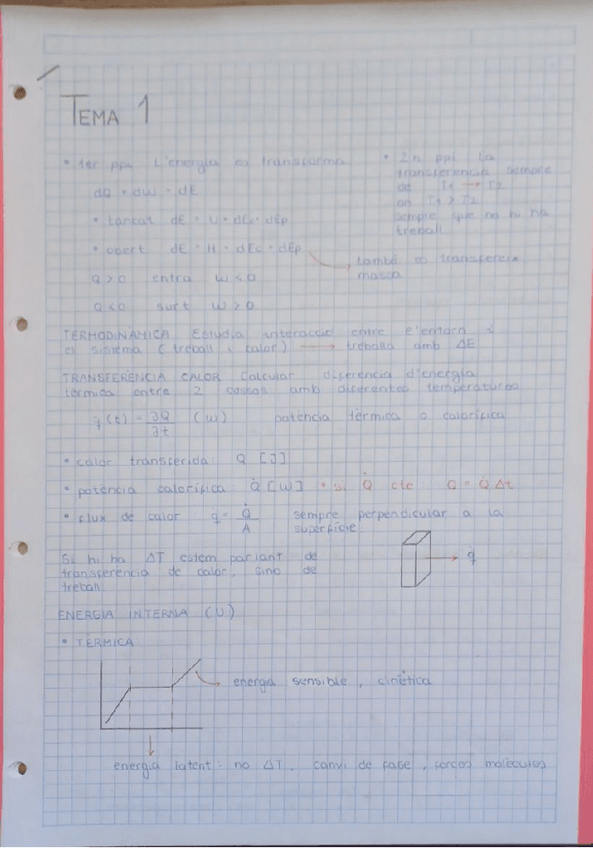 TEMA 1
• 1er ppi L'energia es transforma
dQ + dW = dE
• tancat dE = U + dEc + dEp
• obert dE = H + dEc + dEp
Q > 0 entra W < 0
Q < 0 surt W > 0
• 2n ppi La
transferencia sempre
de T1 → T2
on T1 > T2
sempre que no hi ha
treball
també es transfereix
massa
TERMODINÀMICA Estudia interacció entre l'entorn i
el sistema (treball i calor) → treballa amb ΔE
TRANSFERÈNCIA CALOR Calcular diferencia d'energia
tèrmica entre 2 cossos amb diferentes temperatures
q̇(t) = ∂Q/∂t (W) potencia tèrmica o calorífica
• calor transferida Q [J]
• potència calorífica Q̇ [W] • si Q̇ cte: Q = Q̇ Δt
• flux de calor q̇ = Q̇/A sempre perpendicular a la
superfície
q̇
Si hi ha ΔT estem parlant de
transferència de calor, sino de
treball
ENERGIA INTERNA (U)
• TÈRMICA
energia sensible, cinètica
energia latent: no ΔT, canvi de fase, forces molècules